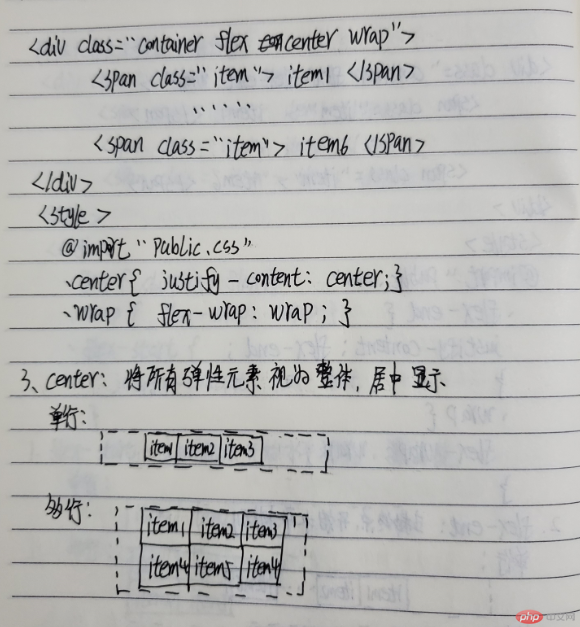 <div class="container flex center wrap">
<span class="item"> item1 </span>
......
<span class="item"> item6 </span>
</div>
<style>
@import "Public.css"
.center{ justify-content: center; }
.wrap { flex-wrap: wrap; }
3、center: 将所有弹性元素视为整体,居中显示
单行:
item item2 item3
多行:
item1 item2 item3
item4 item5 item4
php中文网